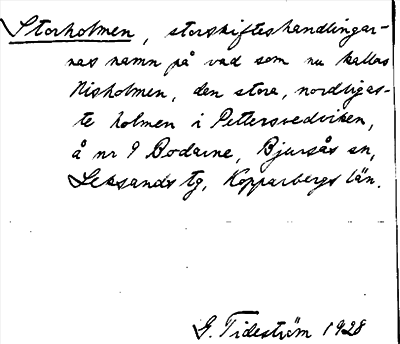 Storholmen, storskifteshandlingar-
nas namn på vad som nu kallas
Nisholmen, den stora, nordligas-
te holmen i Pettersvedviken,
å nr 9 Bodarne, Bjursås sn,
Leksands tg, Kopparbergs län.
G. Tideström 1928